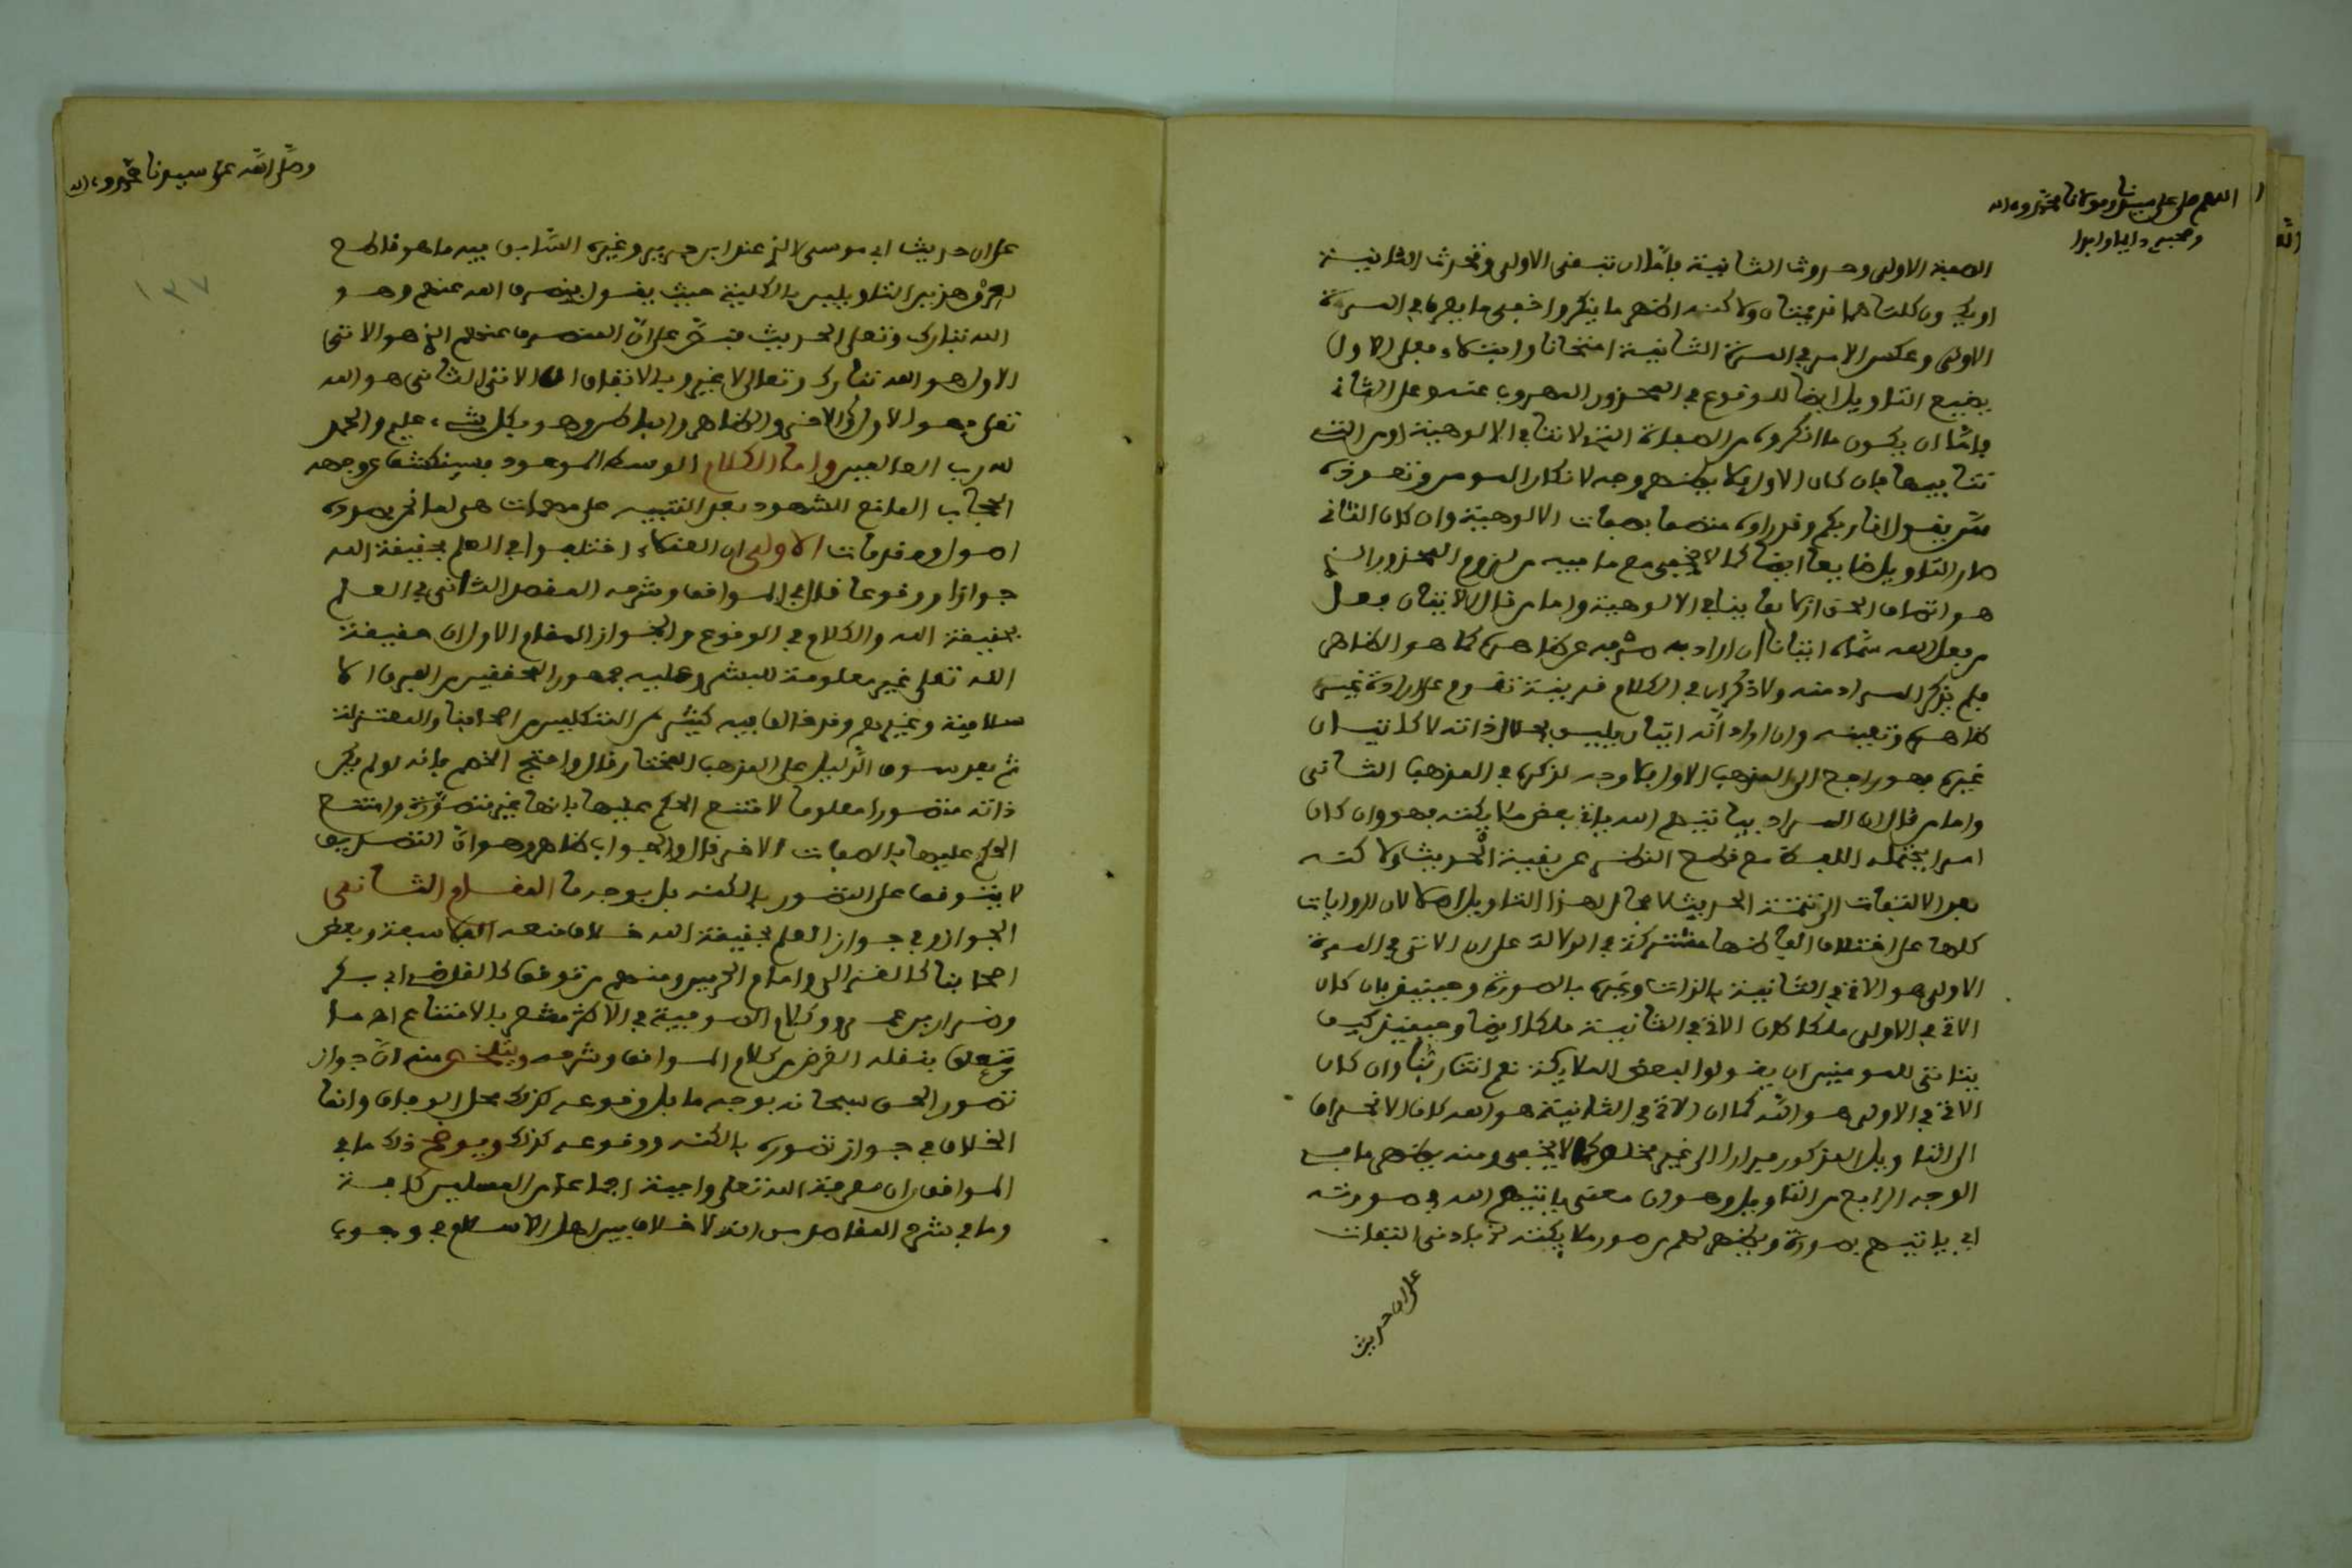 اللهم صل على سيدنا ومولانا محمد وءاله
وصحبه دايما وابدا
الصفة الاولى وحدوث الثانية باما ان تبقى الاولى وتحدث الثانية
او يكون كلتاهما قديمتان ولاكنه اظهر ما ينكر واخفى ما يعرف في المرة
الاولى وعكس الامر في المرة الثانية امتحانا وابتلاء فعلى الاول
يضيع التاويل ايضا للوقوع في المحذور المهروب عنه وعلى الثاني
باما ان يكون ما انكروه من الصفات التي لا تنافي الالوهية او من التي
تنافيها فان كان الاول فلا يظهر وجه لانكار المومن وتعوذه
متى يقول انا ربكم وقد راوه متصفا بصفات الالوهية وان كان الثاني
صار التاويل ضايعا ايضا كما لا يخفى مع ما فيه من لزوم المحذور الذي
هو اتصاف الحق ازلا بما ينافي الالوهية واما من قال الاتيان فعل
من فعل الله سماه اتيانا ان اراد به صرفه عن ظاهره كما هو الظاهر
فلم يذكر المراد منه ولا ذكر ان في الكلام قرينة تقوم على ارادة غير
ظاهره وتعينه وان اراد انه اتيان يليق بجلال ذاته لا كاتيان
غيره فهو راجع الى المذهب الاول فلا وجه لذكره في المذهب الثاني
واما من قال ان المراد بياتيهم الله ياتي بعض ملايكته فهو وان كان
امرا يحتمله اللفظ مع قطع النظر عن بقية الحديث ولاكنه
بعد الالتفات الى تتمة الحديث لا مجال لهذا التاويل اصلا لان الروايات
كلها على اختلاف الفاظها مشتركة في الدلالة على ان الاتي في المرة
الاولى هو الاتي في الثانية بالذات وغيره بالصورة وحينئذ فان كان
الاتي في الاولى ملكا كان الاتي في الثانية ملكا ايضا وحينئذ كيف
يتاتى للمومنين ان يقولوا لبعض الملايكة نعم انت ربنا وان كان
الاتي في الاولى هو الله كما ان الاتي في الثانية هو الله كان الانحراف
الى التاويل المذكور فرارا الى غير مخلص كما لا يخفى ومنه يظهر ما في
الوجه الرابع من التاويل وهو ان معنى ياتيهم الله في صورته
اي ياتيهم بصورة ويظهر لهم من صور ملايكته فبادنى التفات
على ان حديث
وصلى الله على سيدنا محمد وءاله
١٣٧
على ان حديث ابي موسى الذي عند ابن جرير وغيره السابق فيه ما هو قاطع
لعرق هذين التاويلين بالكلية حيث يقول فينصرف الله عنهم وهو
الله تبارك وتعلى الحديث فنص على ان المنصرف عنهم الذي هو الاتي
الاول هو الله تبارك وتعالى لا غير وبالاتفاق ان الاتي الثاني هو الله
تعلى فهو الاول والاخر والظاهر والباطن وهو بكل شيء عليم والحمد
لله رب العالمين واما الكلام الوسط الموعود بسينكشف عن وجهه
الحجاب المانع للشهود بعد التنبيه على مهمات هي لما نحن بصدده
اصول ومقدمات الاولى ان العقلاء اختلفوا في العلم بحقيقة الله
جوازا ووقوعا قال في المواقف وشرحه المقصد الثاني في العلم
بحقيقة الله والكلام في الوقوع والجواز المقام الاول ان حقيقة
الله تعلى غير معلومة للبشر وعليه جمهور المحققين من الفرق الا
سلامية وغيرهم وقد خالف فيه كثير من المتكلمين من اصحابنا والمعتزلة
ثم بعد سوق الدليل على المذهب المختار قال واحتج الخصم بانه لو لم يكن
ذاته متصورا معلوما لامتنع الحكم عليها بانها غير متصورة وامتنع
الحكم عليها بالصفات الاخر قال والجواب ظاهر وهو ان التصديق
لا يتوقف على التصور بالكنه بل بوجه ما المقام الثاني
الجواز وفي جواز العلم بحقيقة الله خلاف منعه الفلاسفة وبعض
اصحابنا كالغزالي وامام الحرمين ومنهم من توقف كالقاضي ابي بكر
وضرار بن عمرو وكلام الصوفية في الاكثر مشعر بالامتناع اه ما
تعلق بنقله الغرض من كلام المواقف وشرحه ويتلخص منه ان جواز
تصور الحق سبحانه بوجه ما بل وقوعه كذلك محل الوفاق وانما
الخلاف في جواز تصوره بالكنه ووقوعه كذلك ويوضح ذلك ما في
المواقف ان معرفة الله تعلى واجبة اجماعا من المسلمين كافة
وما في شرح المقاصد من انه لا خلاف بين اهل الاسلام في وجوب